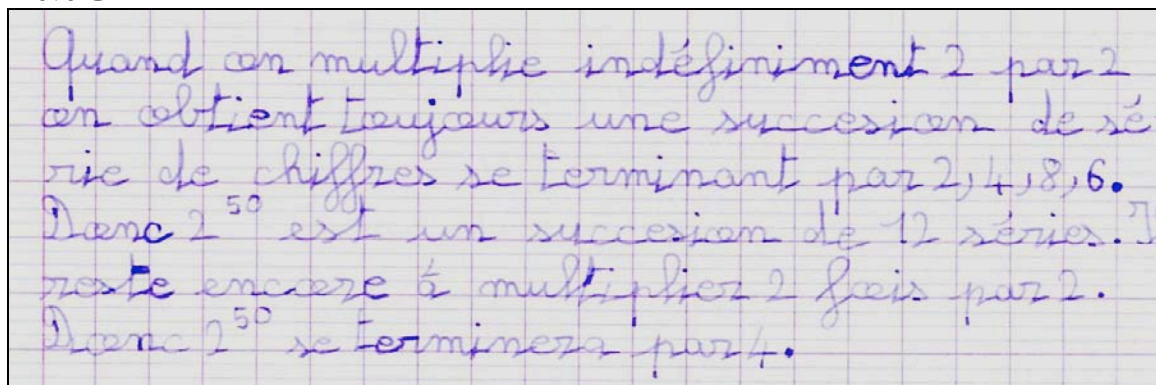 Quand on multiplie indéfiniment 2 par 2
on obtient toujours une succesion de sé
rie de chiffres se terminant par 2,4,8,6.
Donc 2^50 est un succesion de 12 séries. I
reste encore à multiplier 2 fois par 2.
Donc 2^50 se terminera par 4.